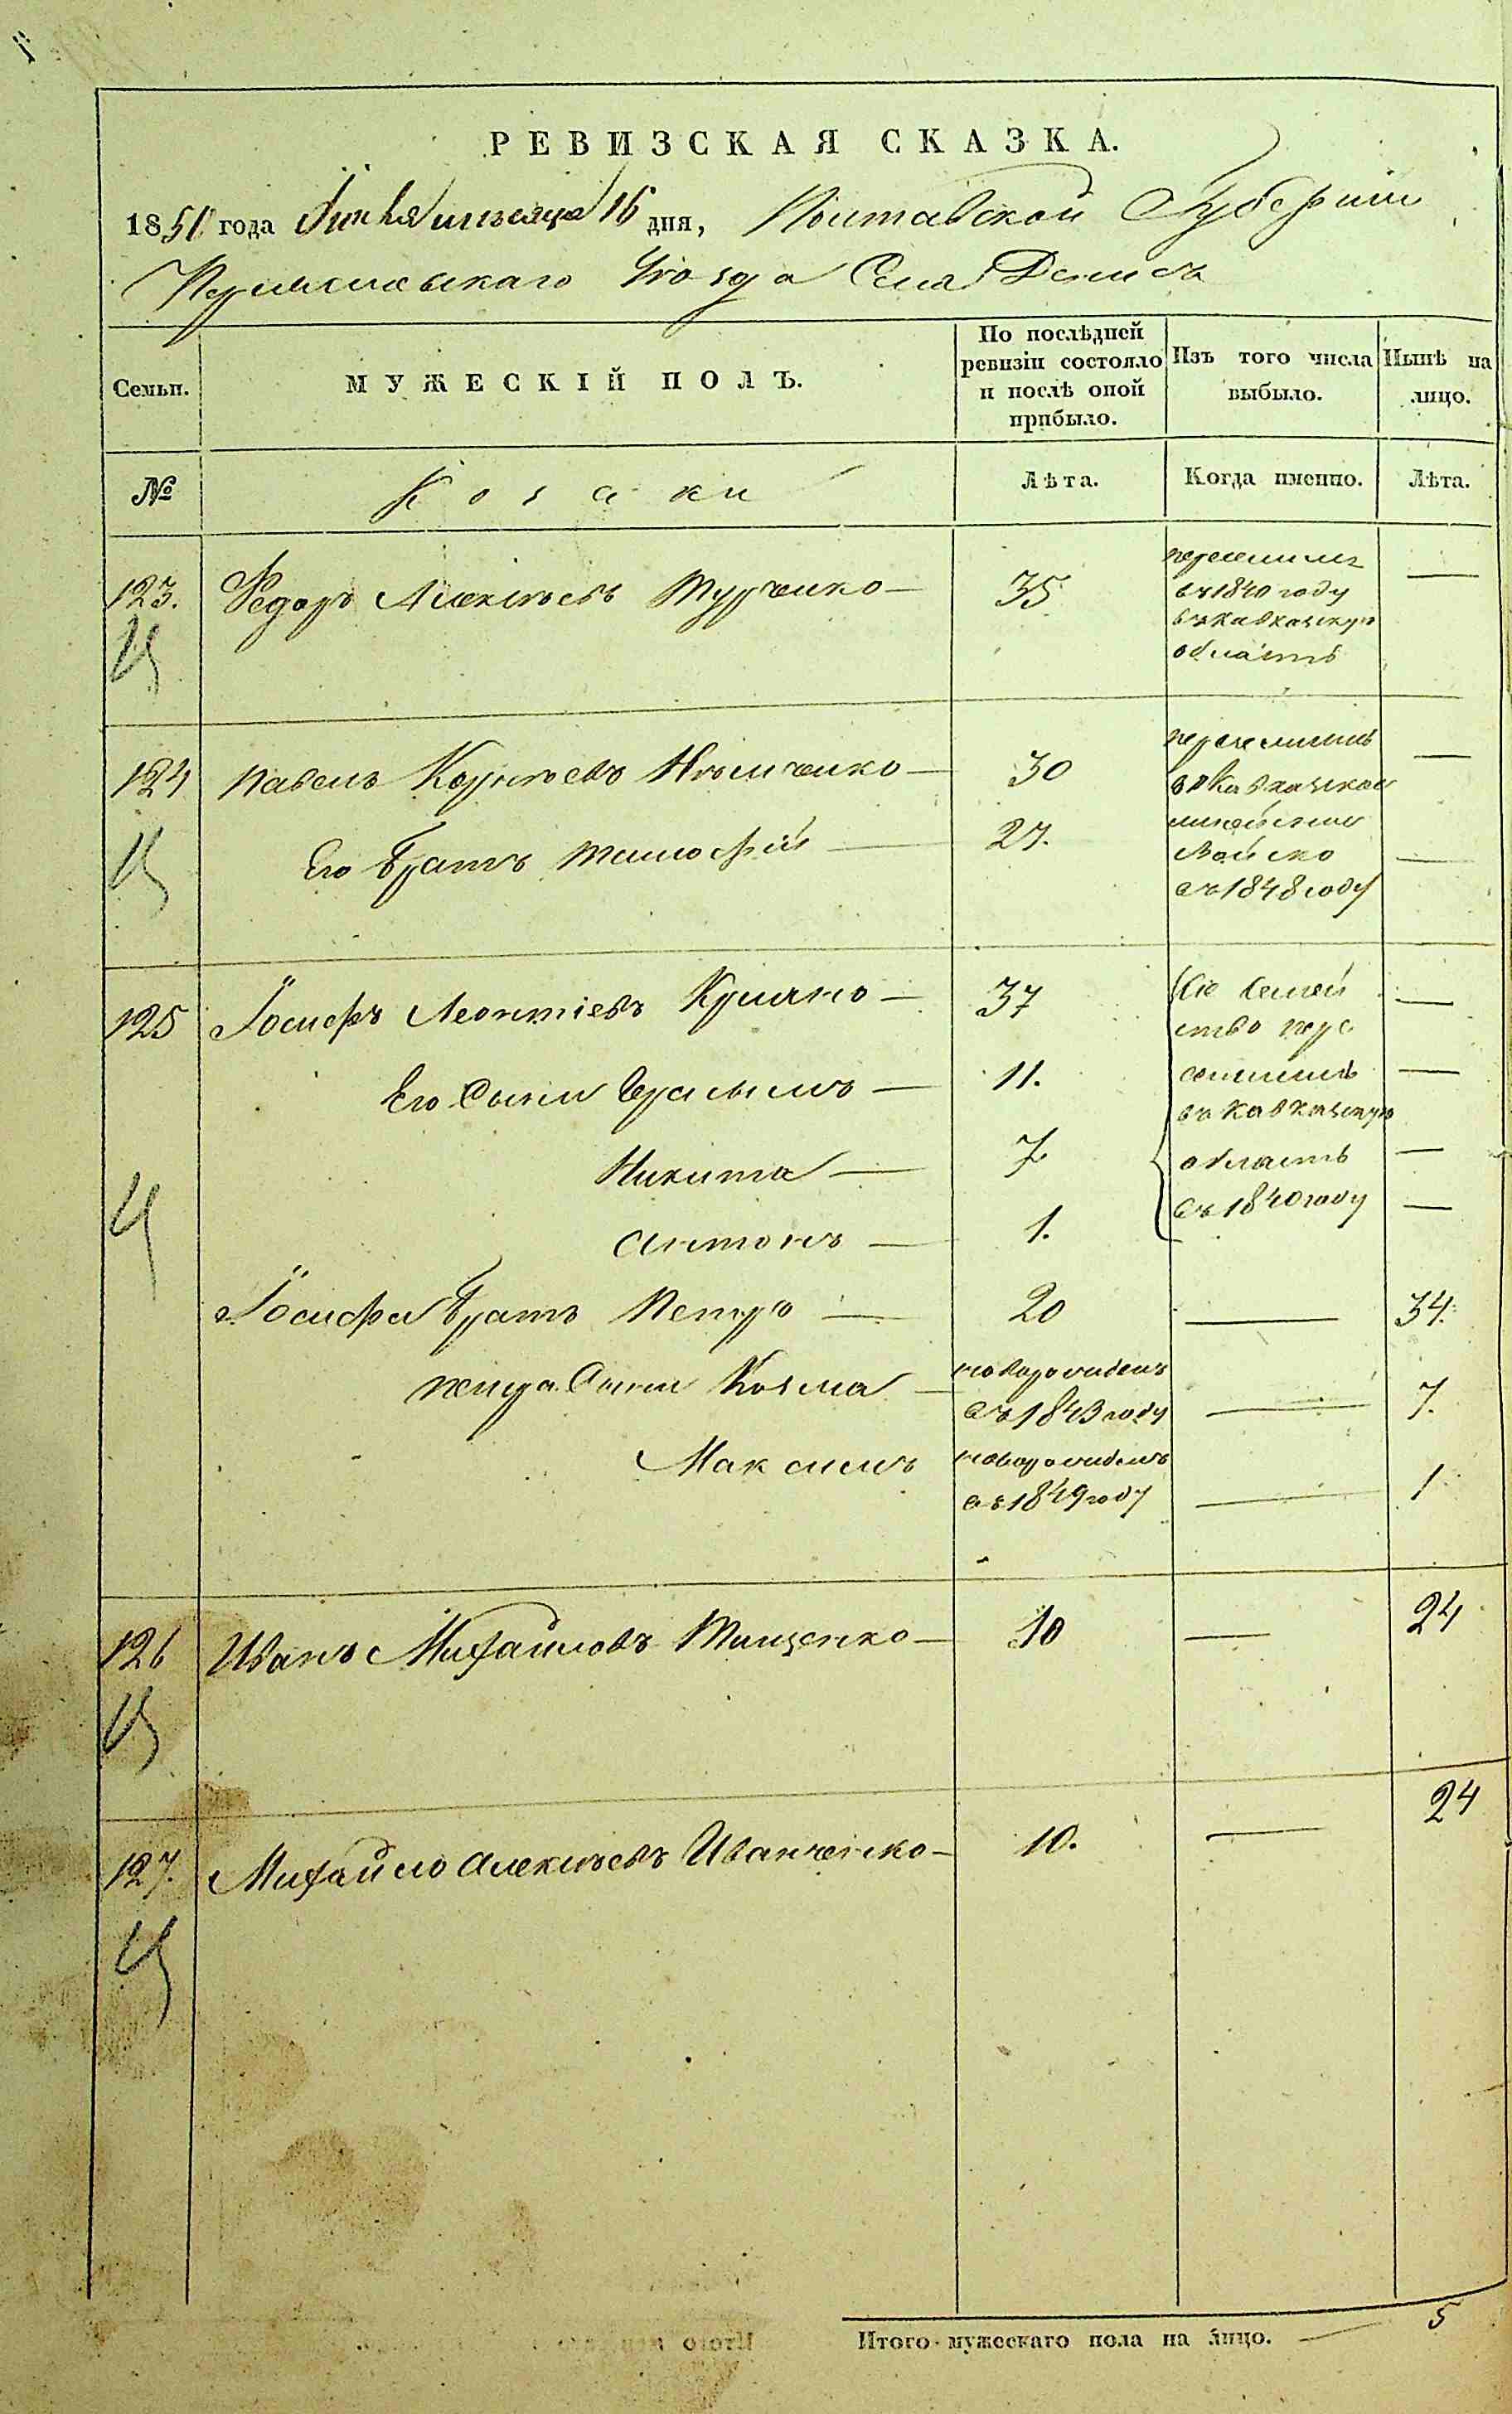 РЕВИЗСКАЯ СКАЗКА.
1851 года Января месяца 16 дня, Полтавской Губернии
Уезда Села Денисъ
Семьи. МУЖЕСКІЙ ПОЛЪ. По послѣдней ревизіи состояло и послѣ оной прибыло. Изъ того числа выбыло. Нынѣ на лицо.
№ Козаки Лѣта. Когда именно. Лѣта.
123. Федоръ Алексѣевъ Турченко — 35 —
въ 1840 году
въ Кавказкую
область
124 Павелъ Корнѣевъ Нѣмченко — 30 переселились —
въ Кавказкое
линейное
Его Братъ Тимофѣй — 27. Войско —
въ 1848 году
125 Іосифъ Леонтіевъ — 37 Сіе Семей —
ство пере
Его Сыны Герасымъ — 11. селились —
въ Кавказкую
Никита — 7 область —
Антонъ — 1. въ 1840 году —
Іосифа Братъ Петро — 20 — 34.
Петра Сыны Козма — новорожденъ
въ 1843 году — 7.
Максимъ новорожденъ
въ 1849 году — 1
126 Иванъ Михайловъ Тищенко — 10 — 24
127. Михайло Алексѣевъ Иванченко — 10. — 24
Итого мужескаго пола на лицо. — 5